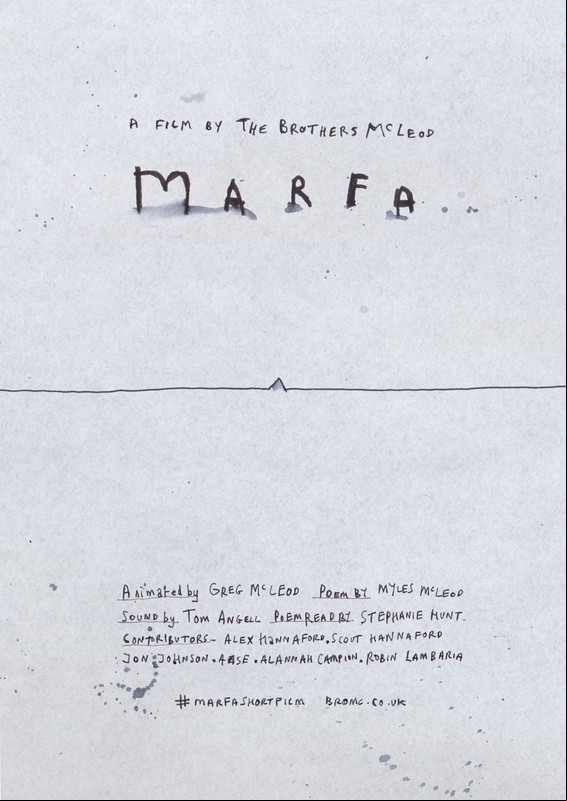 A FILM BY THE BROTHERS McLEOD
MARFA
Animated by GREG McLEOD POEM BY MYLES McLEOD
SOUND by TOM ANGELL POEM READ BY STEPHANIE HUNT.
CONTRIBUTORS - ALEX HANNAFORD. SCOUT HANNAFORD
JON JOHNSON. . ALANNAH CAMPION. ROBIN LAMBARIA
#MARFASHORTFILM BROMC.CO.UK